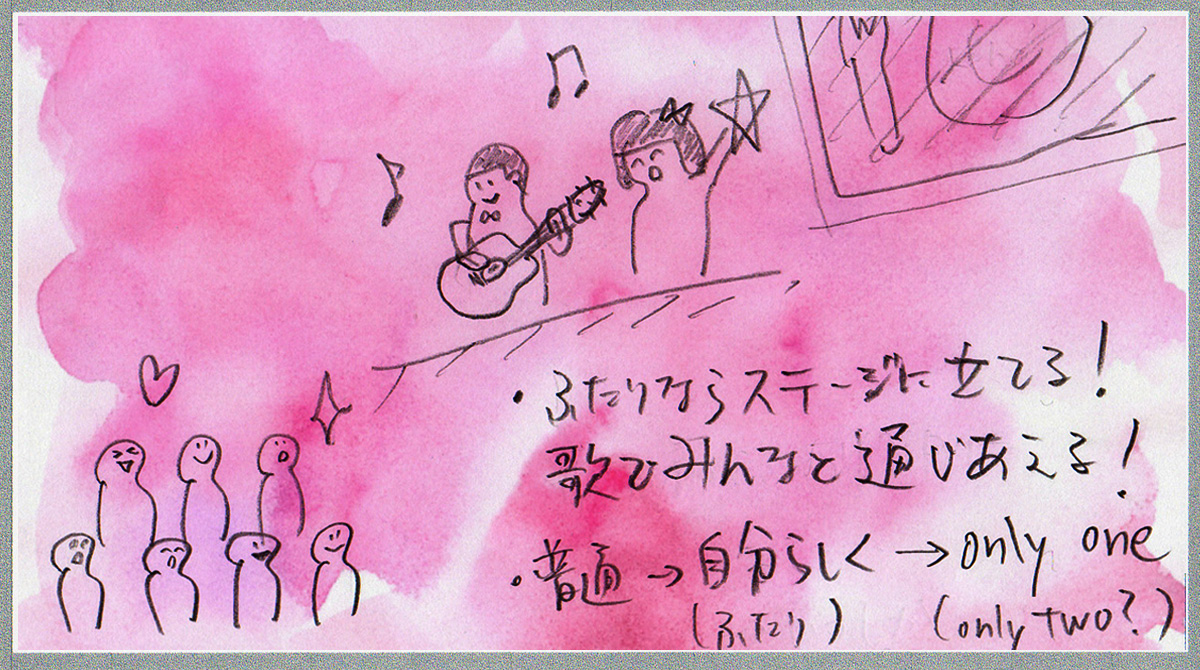 ・ふたりならステージに立てる!
歌でみんなと通じあえる!
・普通→自分らしく→only one
(ふたり) (only two?)